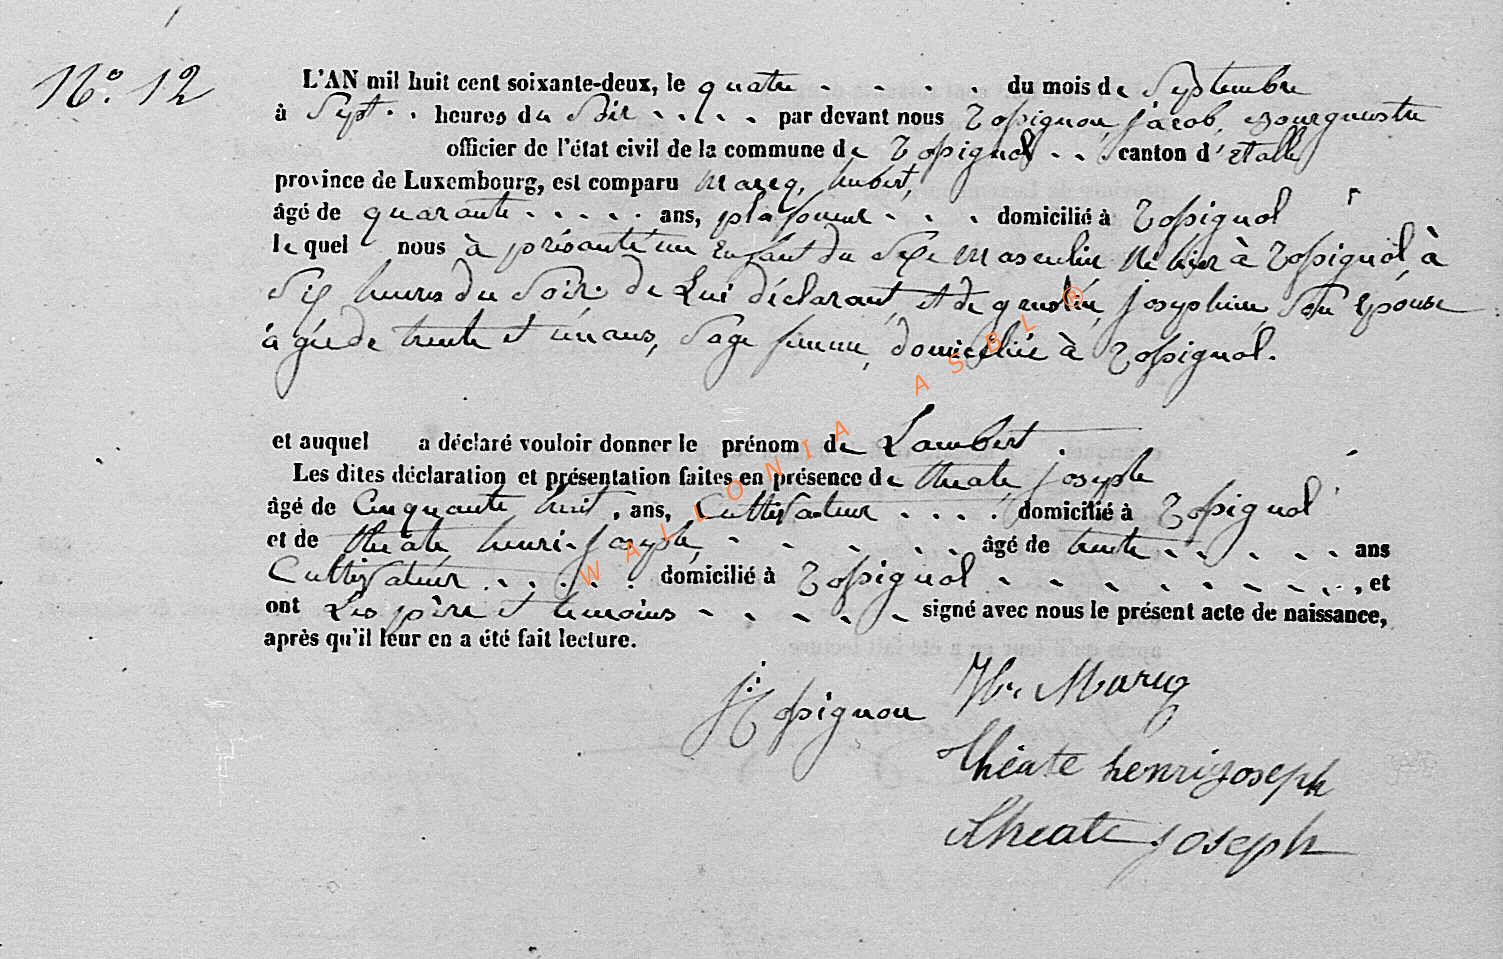 N.º 12
L'AN mil huit cent soixante-deux, le quatre du mois de Septembre
à Sept heures du Soir par devant nous Rossignon, jacob, Bourguestre
officier de l'état civil de la commune de Rossignol canton d'Etalle
province de Luxembourg, est comparu Marcq, hubert,
âgé de quarante ans, plafoneur domicilié à Rossignol
lequel nous à présenté un Enfant du Sexe Masculin Né hier à Rossignol à
Six heures du Soir de Lui déclarant, et de josephine Son Epouse
âgée de trente et un ans, Sage femme, domiciliée à Rossignol.
et auquel a déclaré vouloir donner le prénom de Lambert
Les dites déclaration et présentation faites en présence de theate joseph
âgé de Cinquante huit, ans, Cultivateur domicilié à Rossignol
et de théate, henri-joseph, âgé de trente ans
Cultivateur domicilié à Rossignol, et
ont Les père et temoins signé avec nous le présent acte de naissance,
après qu'il leur en a été fait lecture.
J. Rossignon H. Marcq
théate henri joseph
theate joseph
WALLONIA ASBL ®